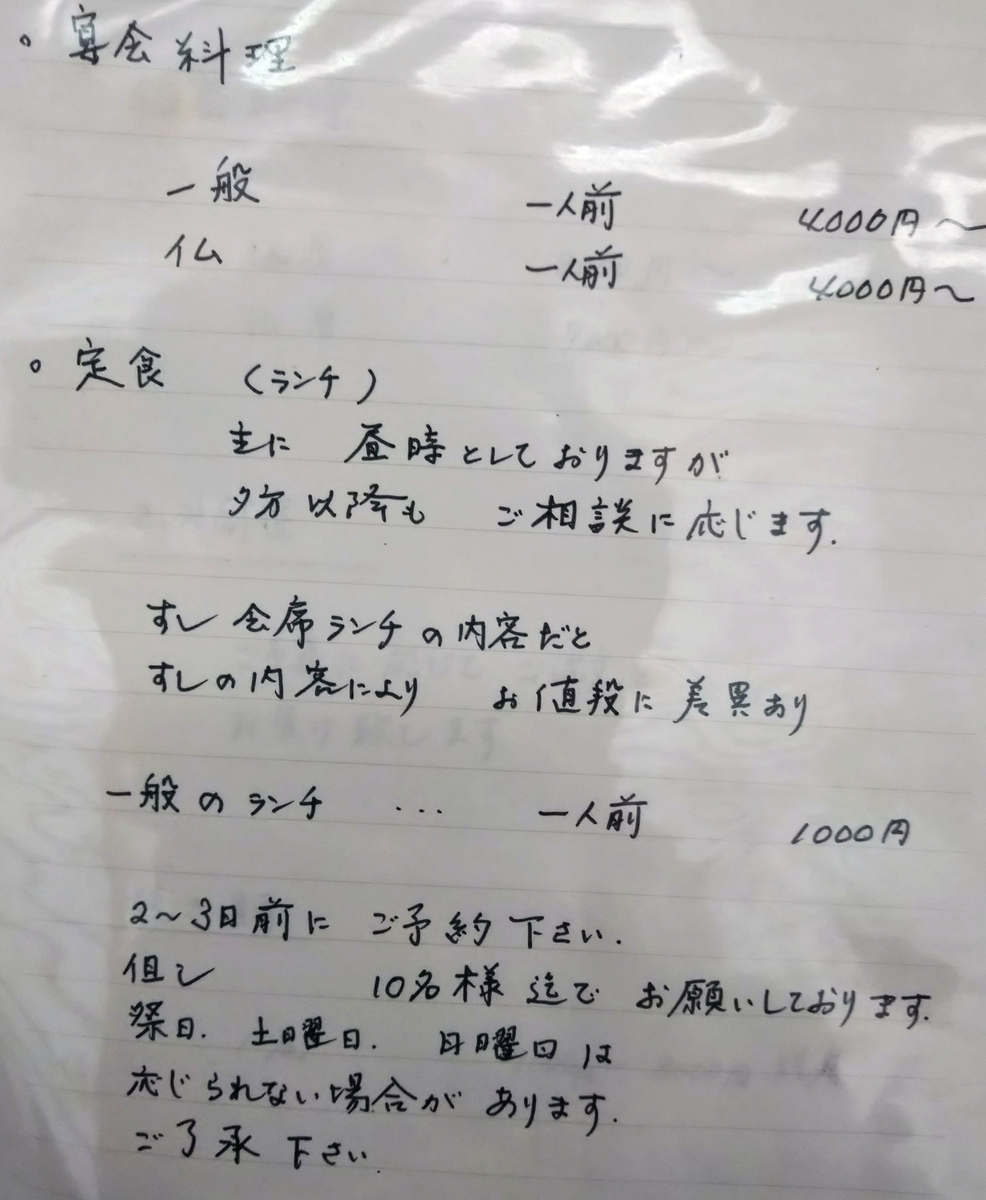 。宴会料理
一般 一人前 4000円〜
仏 一人前 4000円〜
。定食 (ランチ)
主に 昼時としておりますが
夕方以降も ご相談に応じます.
すし会席ランチの内容だと
すしの内容により お値段に差異あり
一般のランチ ... 一人前 1000円
2〜3日前に ご予約下さい.
但し 10名様迄で お願いしております.
祭日. 土曜日. 日曜日は
応じられない場合が あります.
ご了承 下さい.